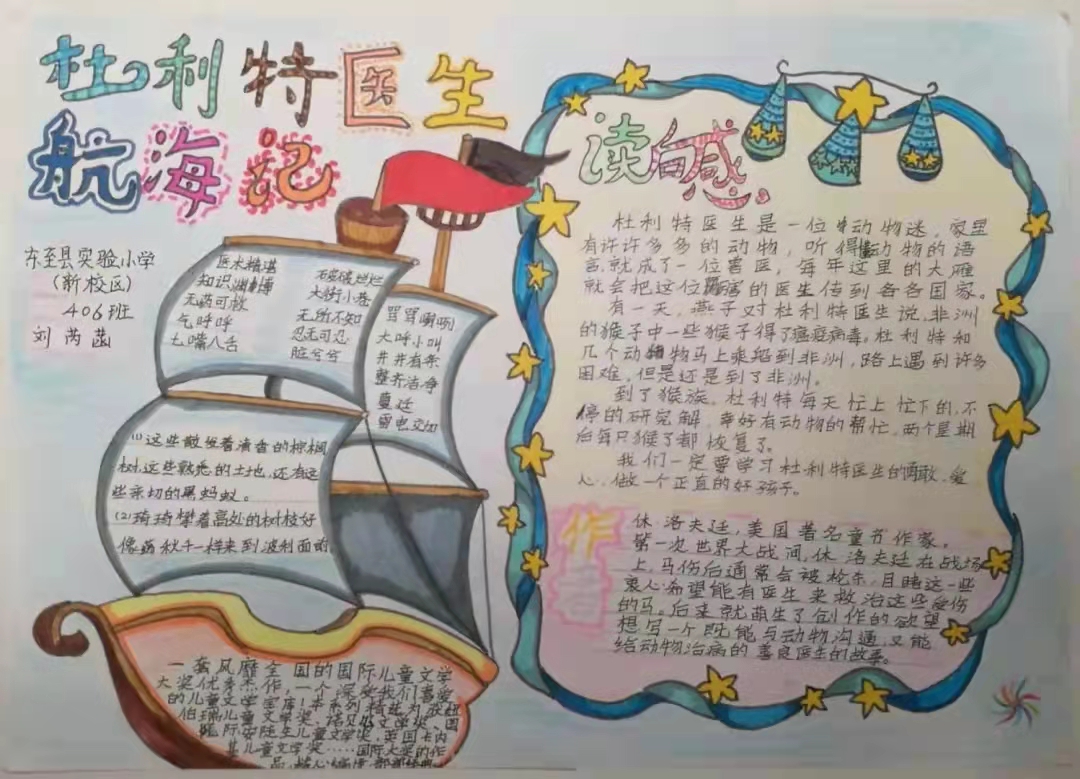 杜利特医生
航海记
东至县实验小学
(新校区)
406班
刘芮菡
医术精湛
知识渊博
无药可救
气呼呼
七嘴八舌
破破烂烂
大街小巷
无所不知
忍无可忍
脏兮兮
大呼小叫
井井有条
整齐洁净
蔓延
雷电交加
(1)这些散发着清香的棕榈
树,这些熟悉的土地,还有这
些亲切的黑蚂蚁。
(2)琦琦攀着高处的树枝好
像荡秋千一样来到波利面前
一套风靡全国的国际儿童文学
大奖优秀杰作,一个深受我们喜爱
的儿童文学宝库!本系列精选
儿童文学奖
际安徒生儿童文学奖,英国卡内
基儿童文学奖……国际大奖的作
品
读后感
杜利特医生是一位动物迷,家里
有许许多多的动物,听得懂动物的语
言,就成了一位兽医,每年这里的大雁
就会把这位厉害的医生传到各各国家。
有一天,燕子对杜利特医生说,非洲
的猴子中一些猴子得了瘟疫病毒。杜利特和
几个动物马上乘船到非洲,路上遇到许多
困难,但是还是到了非洲。
到了猴族,杜利特每天忙上忙下的,不
停的研究解,幸好有动物的帮忙,两个星期
后每只猴子都恢复了。
我们一定要学习杜利特医生的勇敢、爱
心,做一个正直的好孩子。
作者
休·洛夫廷,美国著名童书作家,
第一次世界大战间,休·洛夫廷在战场
上,马伤后通常会被枪杀,目睹这一些
衷心希望能有医生来救治这些受伤
的马。后来就萌生了创作的欲望
想写一个既能与动物沟通,又能
给动物治病的善良医生的故事。